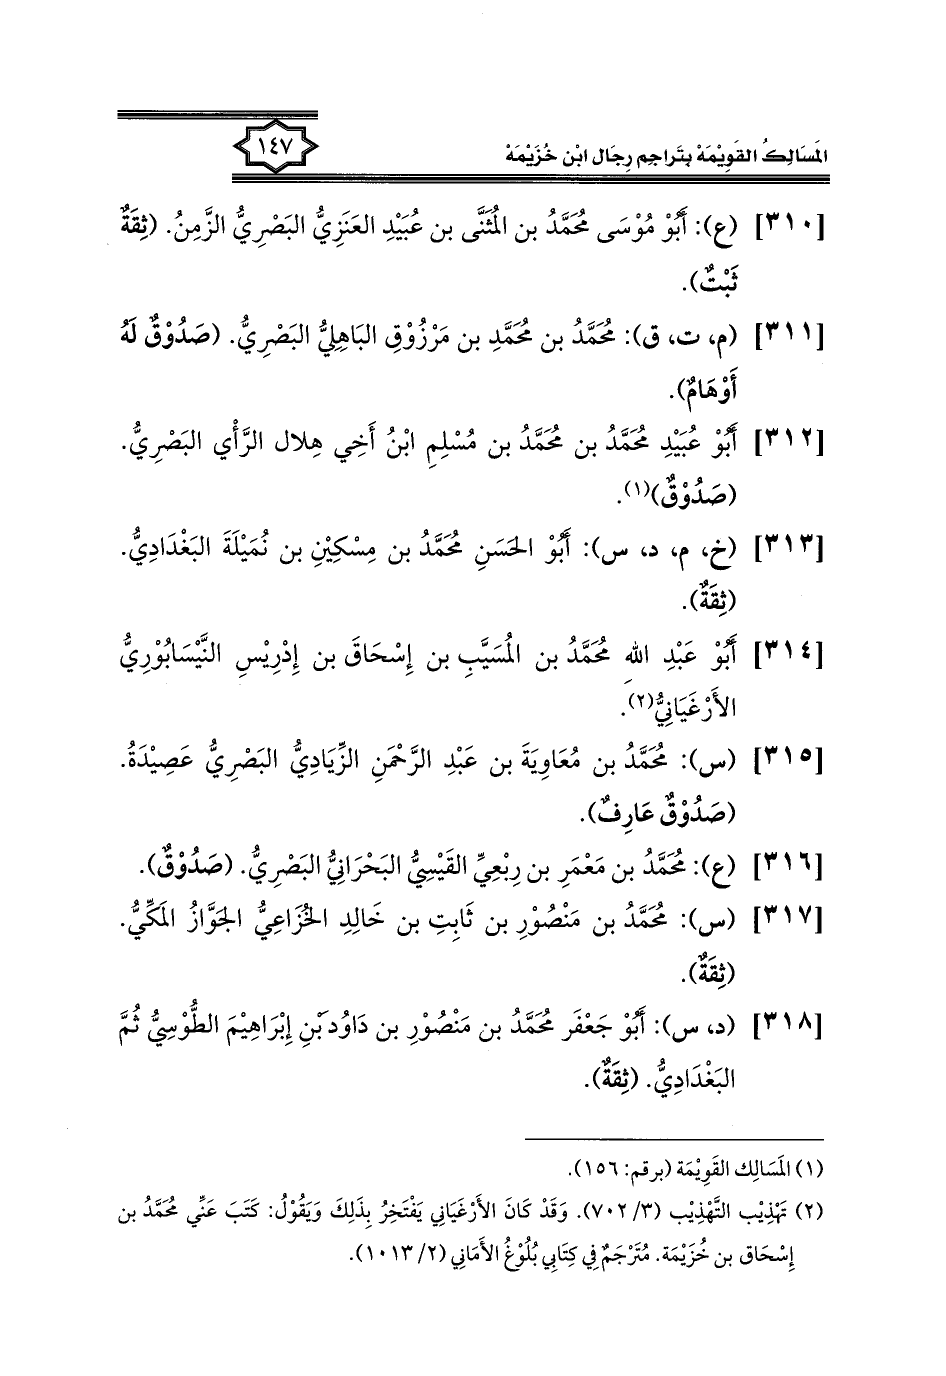 المَسَالِكُ القَوِيْمَة بِتَراجِم رِجَال ابْن خُزَيْمَة
١٤٧
[٣١٠] (ع): أَبُوْ مُوْسَى مُحَمَّدُ بن المُثَنَّى بن عُبَيْدِ العَنَزِيُّ البَصْرِيُّ الزَّمِنُ. (ثِقَةٌ
ثَبْتٌ).
[٣١١] (م، ت، ق): مُحَمَّدُ بن مُحَمَّدِ بن مَرْزُوْقِ البَاهِلِيُّ البَصْرِيُّ. (صَدُوْقٌ لَهُ
أَوْهَامٌ).
[٣١٢] أَبُوْ عُبَيْدِ مُحَمَّدُ بن مُحَمَّدُ بن مُسْلِمِ ابْنُ أَخِي هِلال الرَّأْي البَصْرِيُّ.
(صَدُوْقٌ)(١).
[٣١٣] (خ، م، د، س): أَبُوْ الحَسَنِ مُحَمَّدُ بن مِسْكِيْنِ بن نُمَيْلَةَ البَغْدَادِيُّ.
(ثِقَةٌ).
[٣١٤] أَبُوْ عَبْدِ اللهِ مُحَمَّدُ بن المُسَيَّبِ بن إِسْحَاقَ بن إِدْرِيْسِ النَّيْسَابُوْرِيُّ
الأَرْغِيَانِيُّ(٢).
[٣١٥] (س): مُحَمَّدُ بن مُعَاوِيَةَ بن عَبْدِ الرَّحْمَنِ الزِّيَادِيُّ البَصْرِيُّ عَصِيْدَةُ.
(صَدُوْقٌ عَارِفٌ).
[٣١٦] (ع): مُحَمَّدُ بن مَعْمَرِ بن رِبْعِيِّ القَيْسِيُّ البَحْرَانِيُّ البَصْرِيُّ. (صَدُوْقٌ).
[٣١٧] (س): مُحَمَّدُ بن مَنْصُوْرِ بن ثَابِتِ بن خَالِدِ الخُزَاعِيُّ الجَوَّازُ المَكِّيُّ.
(ثِقَةٌ).
[٣١٨] (د، س): أَبُوْ جَعْفَر مُحَمَّدُ بن مَنْصُوْرِ بن دَاوُدَ بْنِ إِبْرَاهِيْمَ الطُّوْسِيُّ ثُمَّ
البَغْدَادِيُّ. (ثِقَةٌ).
(١) المَسَالِك القَوِيْمَة (برقم: ١٥٦).
(٢) تَهْذِيْب التَّهْذِيْب (٣/ ٧٠٢). وَقَدْ كَانَ الأَرْغِيَانِي يَفْتَخِرُ بِذَلِكَ وَيَقُوْلُ: كَتَبَ عَنِّي مُحَمَّدُ بن
إِسْحَاق بن خُزَيْمَة. مُتَرْجَمٌ فِي كِتَابِي بُلُوْغُ الأَمَانِي (٢/ ١٠١٣).